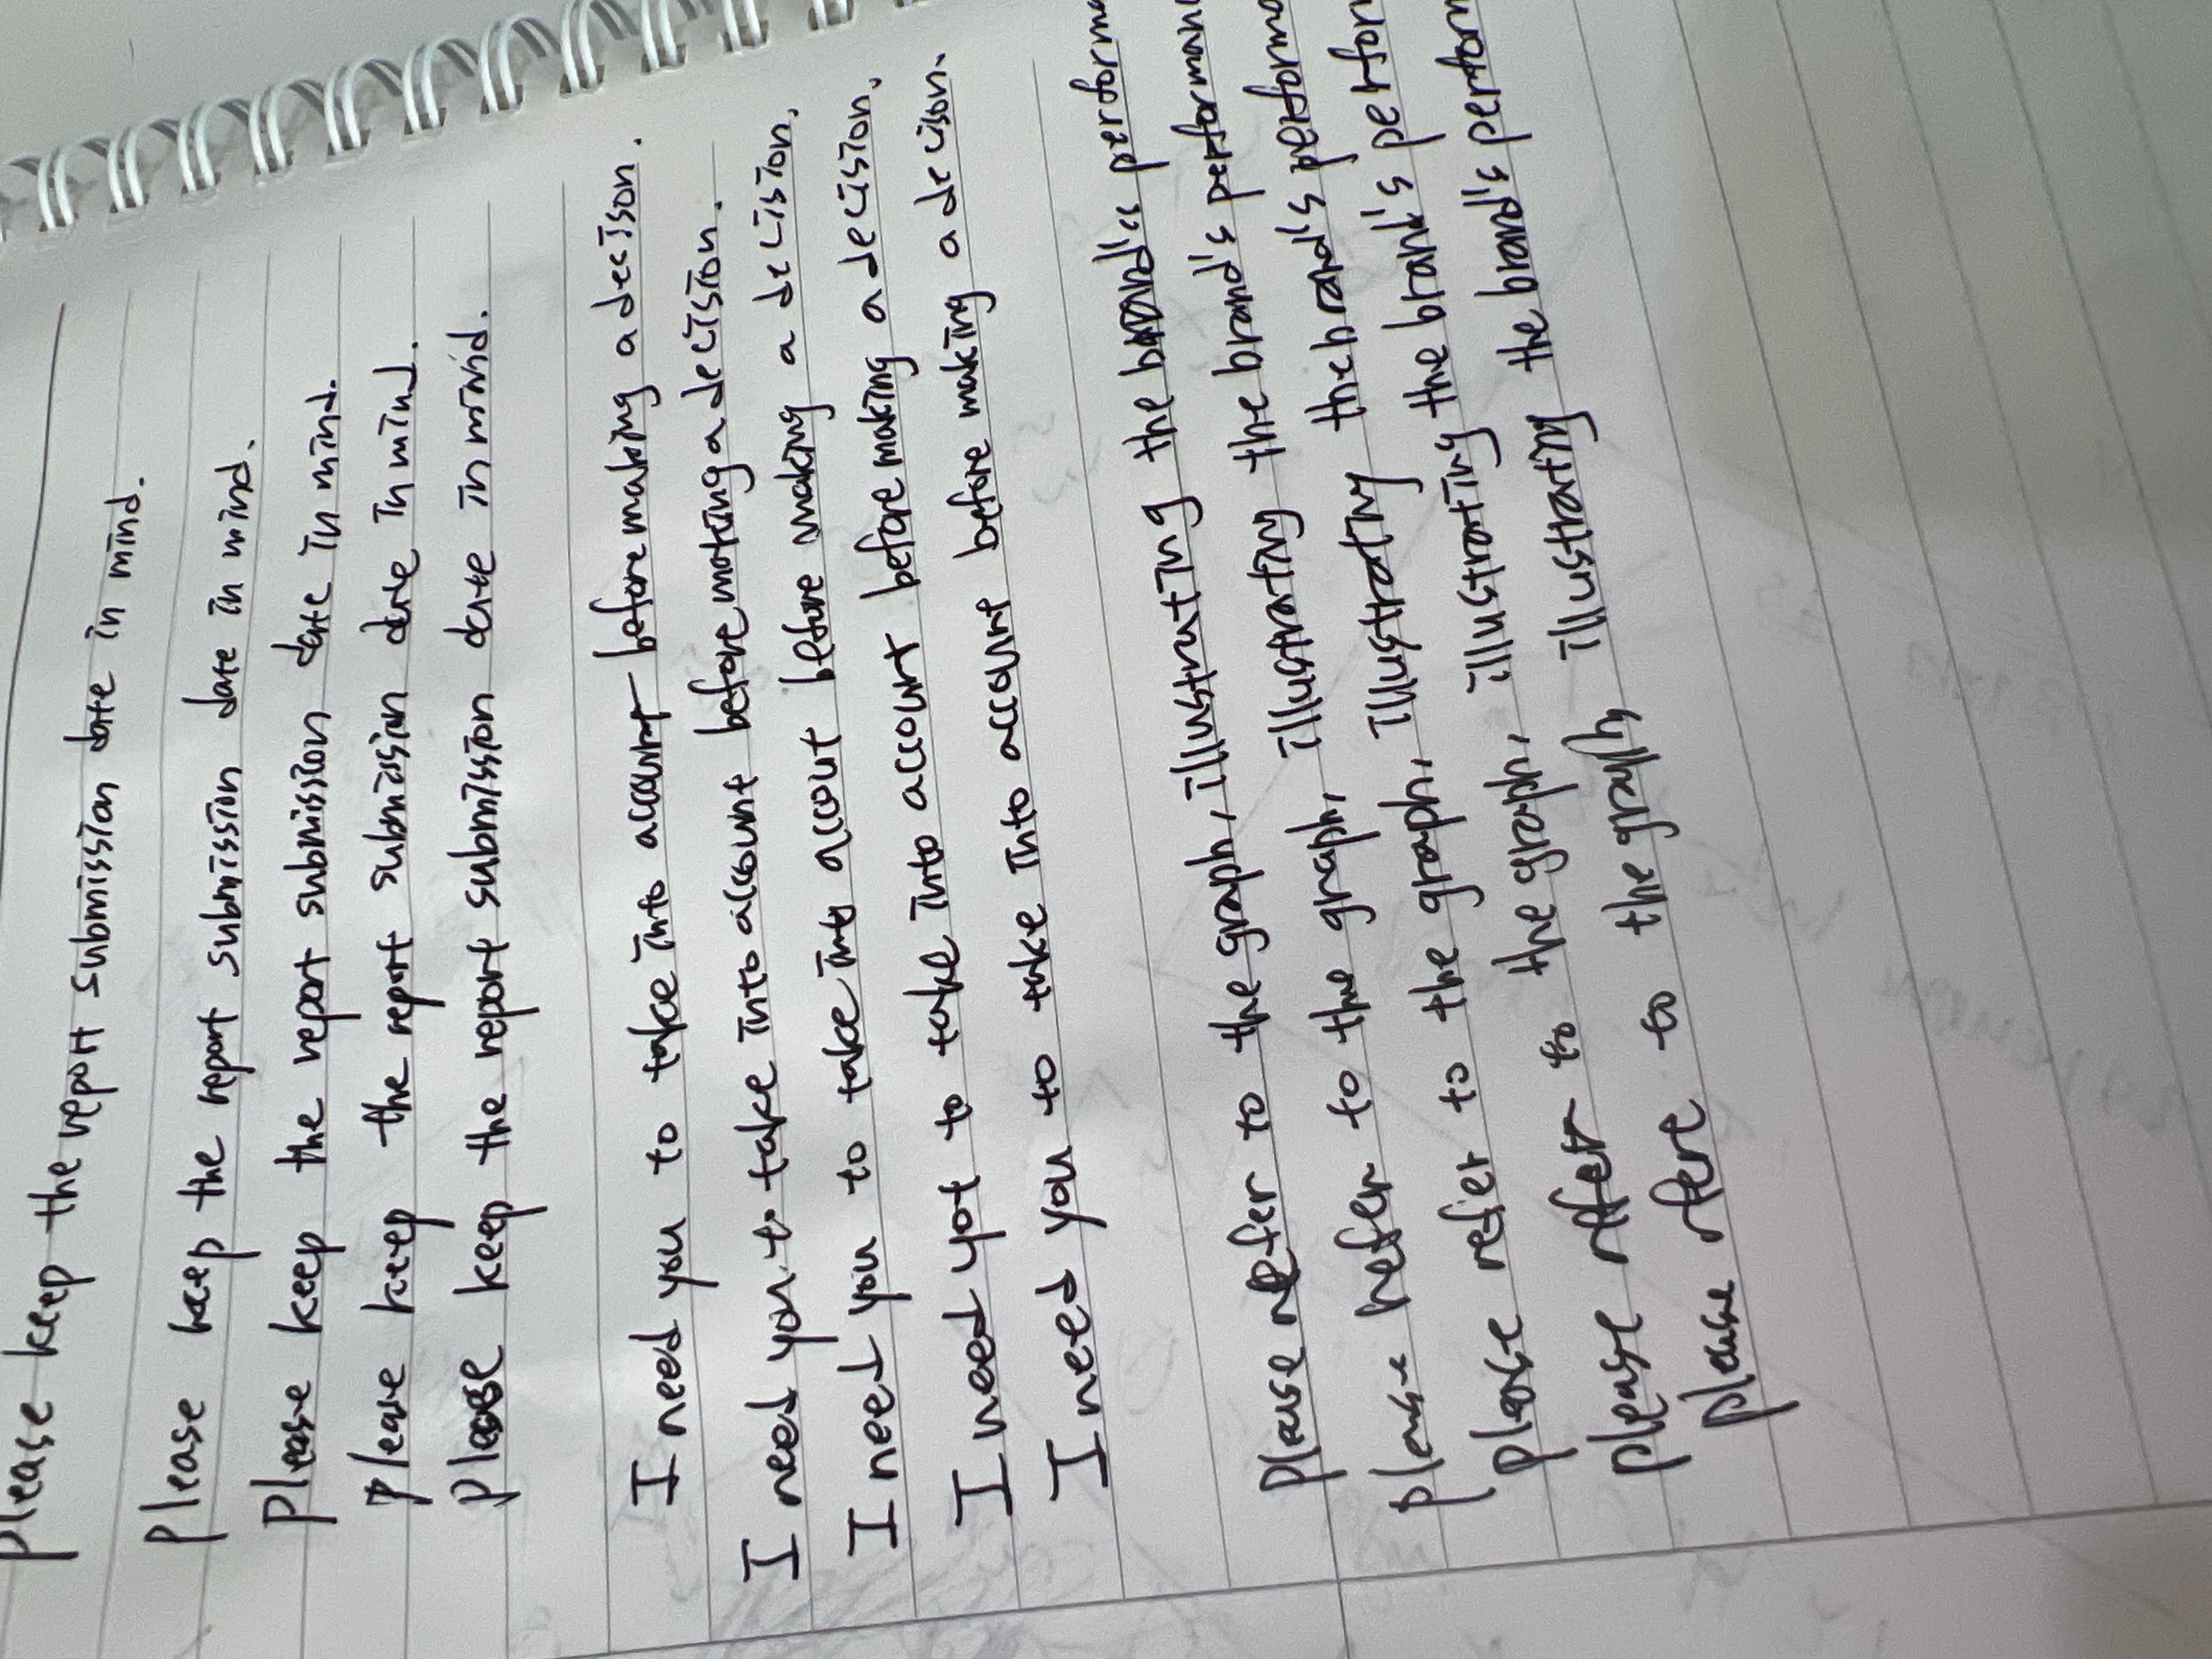 Please keep the report submission date in mind.
Please keep the report submission date in mind.
Please keep the report submission date in mind.
Please keep the report submission date in mind.
Please keep the report submission date in mind.
I need you to take into account before making a decison.
I need you to take into account before making a decision.
I need you to take into account before making a decision.
I need yot to take into account before making a decision.
I need you to take into account before making a decison.
Please refer to the graph, illustrating the performa
please refer to the graph, illustrating the brand's performan
please refer to the graph, illustrating the brand's performa
please refer to the graph, illustrating the brank's perfor
please refere to the graph, illustrating the brand's perfor